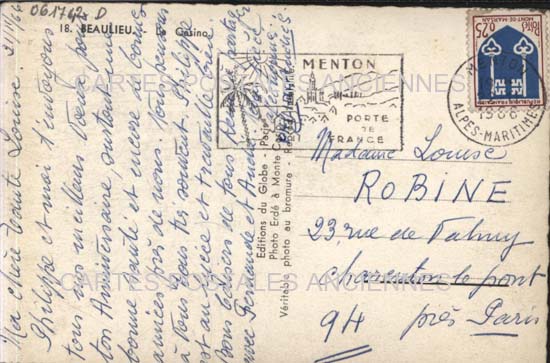 061742 D
18. BEAULIEU. - Le Casino
21/11/66
Ma chère Tante Louise,
Philippe et moi t'envoyons
tous nos meilleurs Vœux pour
ton Anniversaire, surtout une
bonne santé et encore de bonnes
années près de nous. Nous pensons
à Vous très souvent. Philippe
est au Lycée et travaille bien.
Bons baisers de tous
avec Fernande et Anne
MENTON
PORTE
DE
FRANCE
MENTON
1966
ALPES-MARITIMES
0,25
REPUBLIQUE FRANÇAISE
MONT-DE-MARSAN
Editions du Globe - Paris
Photo Erdé à Monte Carlo
Véritable photo au bromure - Reproduction
Madame Louise
ROBINE
23, rue de Valmy
Charenton le pont
94 près Paris
CARTES POSTALES ANCIENNES
CARTES POSTALES ANCIENNES